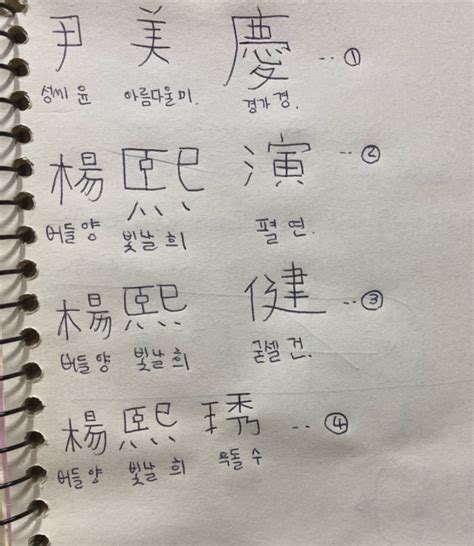 尹 美 慶 ‥①
성씨 윤 아름다울 미. 경사 경.
楊 熙 演 ‥②
버들 양 빛날 희 펼 연.
楊 熙 健 ‥③
버들 양 빛날 희 굳셀 건.
楊 熙 琇 ‥④
버들 양 빛날 희 옥돌 수